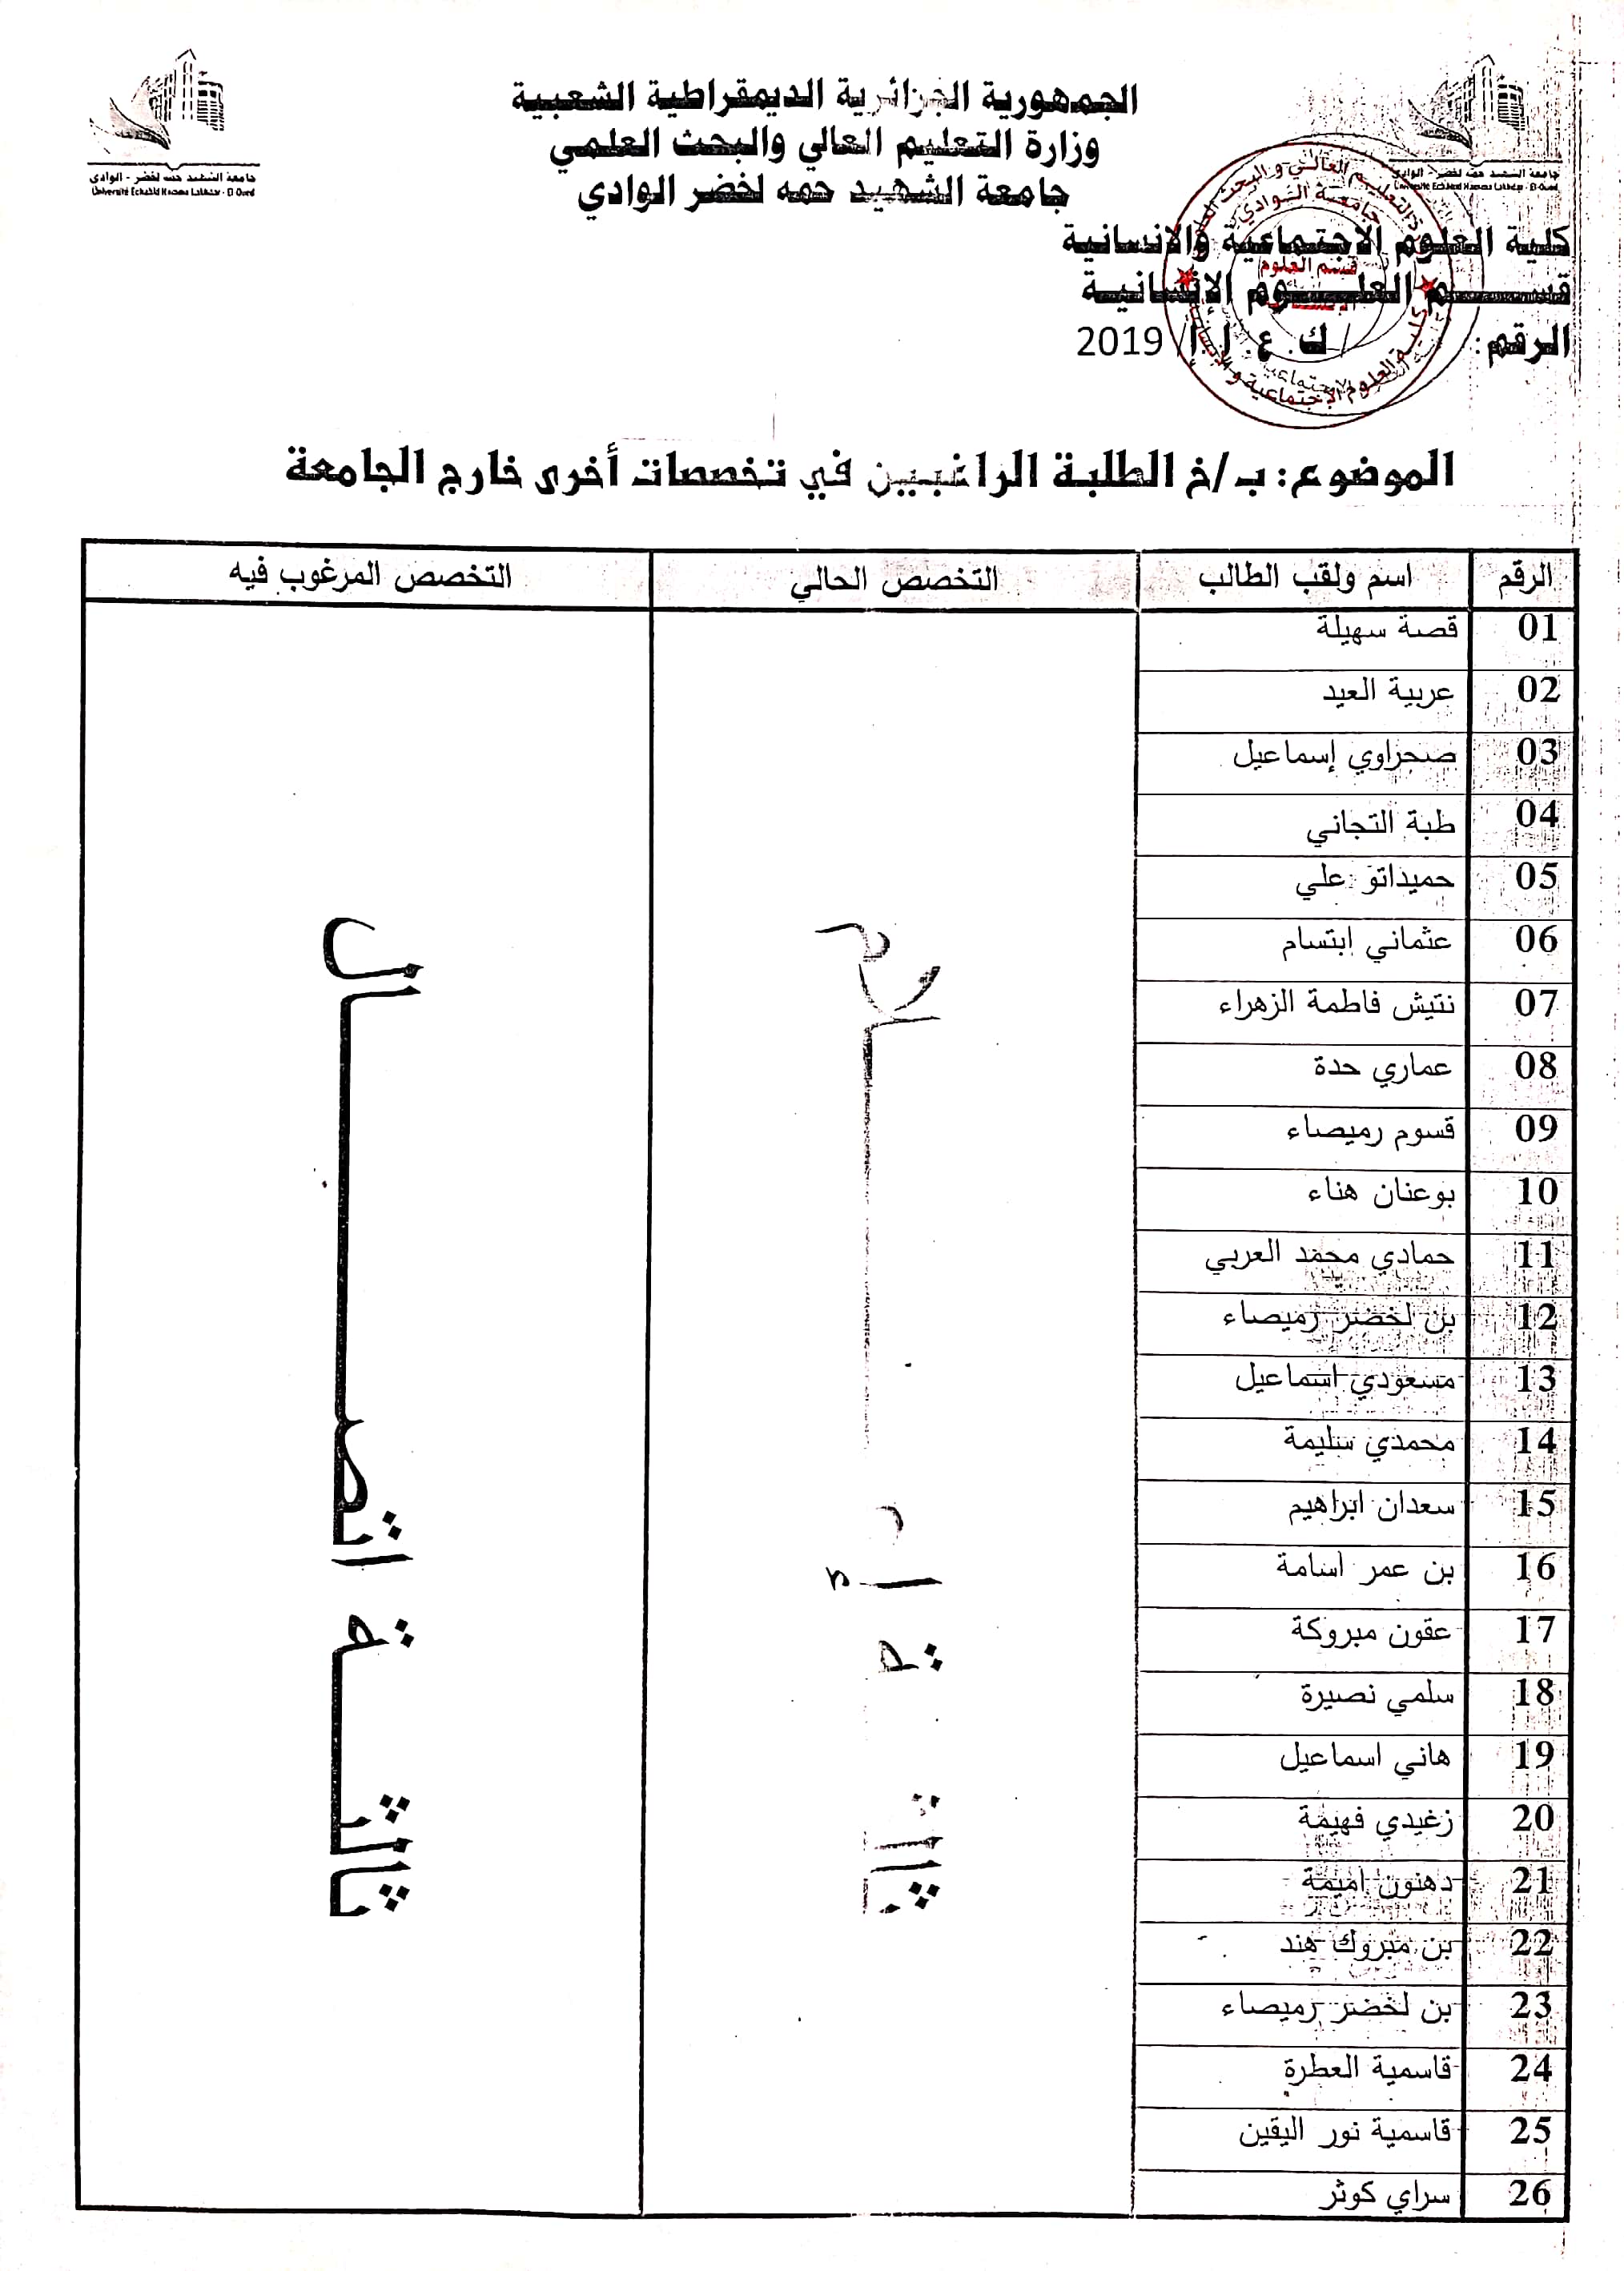 الجمهورية الجزائرية الديمقراطية الشعبية
وزارة التعليم العالي والبحث العلمي
جامعة الشهيد حمه لخضر الوادي
جامعة الشهيد حمه لخضر - الوادي
Université Echahid Hamma Lakhdar - El Oued
جامعة الشهيد حمه لخضر - الوادي
Université Echahid Hamma Lakhdar - El Oued
كلية العلوم الاجتماعية والانسانية
قســـم العلـــوم الإنسانية
الرقم: / ك. ع. ا. إ/ 2019
الموضوع: ب/خ الطلبة الراغبين في تخصصات أخرى خارج الجامعة
الرقم اسم ولقب الطالب التخصص الحالي التخصص المرغوب فيه
01 قصة سهيلة
02 عربية العيد
03 صحراوي إسماعيل
04 طبة التجاني
05 حميداتو علي
06 عثماني ابتسام
07 نتيش فاطمة الزهراء
08 عماري حدة
09 قسوم رميصاء
10 بوعنان هناء
11 حمادي محمد العربي
12 بن لخضر رميصاء
13 مسعودي اسماعيل
14 محمدي سليمة
15 سعدان ابراهيم
16 بن عمر اسامة
17 عقون مبروكة
18 سلمي نصيرة
19 هاني اسماعيل
20 زغيدي فهيمة
21 دهنون اميمة
22 بن مبروك هند
23 بن لخضر رميصاء
24 قاسمية العطرة
25 قاسمية نور اليقين
26 سراي كوثر
ثالثة إعلام
ثالثة اتصال